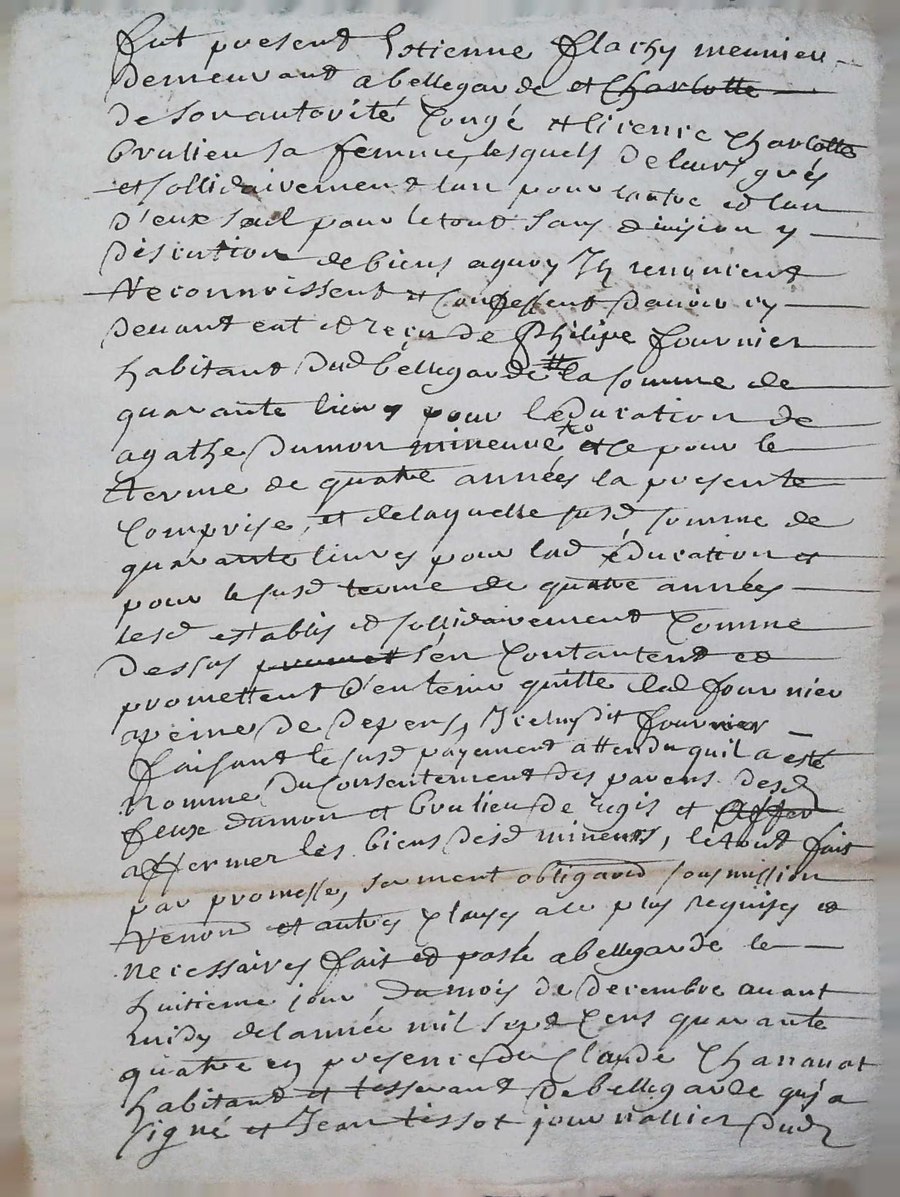 fut present Estienne flachy meunier
demeurant a bellegarde et Charlotte
de son autorité Congé et licence Charlotte
brulieu sa femme, lesquels de leurs grés
et sollidairement lun pour lautre et lun
d'eux seul pour le tout sans division ny
discution de biens aquoy Ils renoncent
Reconnoissent et Confessent davoir cy
devant eut et reçu de Philipe fournier
habitant dud bellegarde la somme de
quarante livres pour leducation de
agathe dumon mineure et ce pour le
terme de quatre années la presente
Comprise, et de laquelle susd somme de
quarante livres pour lad éducation et
pour le susd terme de quatre années
lesd establis et sollidairement Comme
dessus promet s'en Contantent et
promettent d'en tenir quitte led fournier
a peine de depens, Iceluy dit fournier
faisant le susd payement attendu quil a esté
Nommé du Consentement des parens desd
feux dumon et brulieu de regis et affer
affermer les biens desd mineurs, le tout fait
par promesse, serment obligaōn soumission
Renonō et autres clauses a ce plus requises et
necessaires fait et passé a bellegarde le
huitieme jour du mois de decembre avant
midy de lannée mil sept Cens quarante
quatre en presence de Claude Chananat
habitant et tisserant de bellegarde qui a
signé et Jean tissot journallier dud